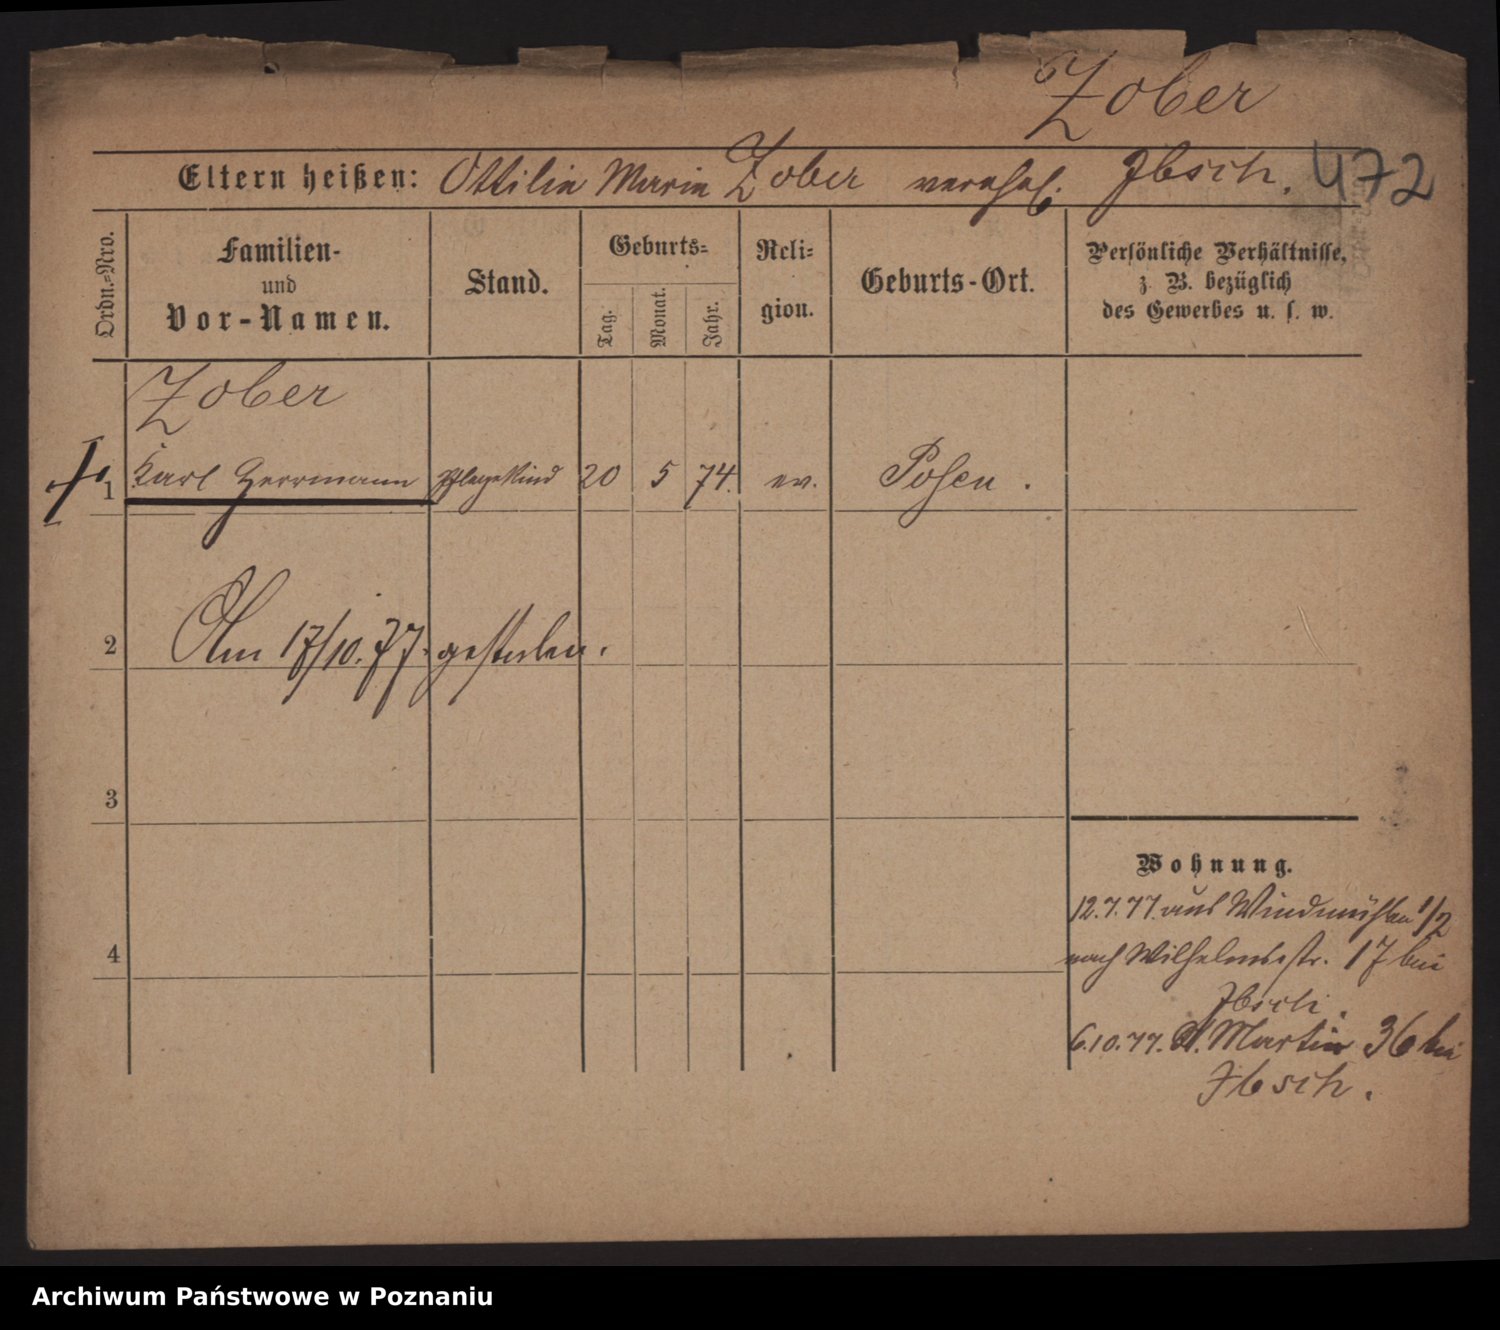 Zober
Eltern heißen: Ottilie Marie Zober verehel. Ibsch.
472
Ordn.-Nro.
Familien-
und
Vor-Namen.
Stand.
Geburts-
Tag.
Monat.
Jahr.
Reli-
gion.
Geburts-Ort.
Persönliche Verhältnisse,
z. B. bezüglich
des Gewerbes u. s. w.
Zober
1 Karl Herrmann Pflegekind 20 5 74. ev. Posen.
2 Am 17/10. 77. gestorben.
3
4
Wohnung.
12.7.77. aus Windmühlen 1/2
nach Wilhelmsstr. 17 bei
Ibsch.
6.10.77. St. Martin 36 bei
Ibsch.
Archiwum Państwowe w Poznaniu